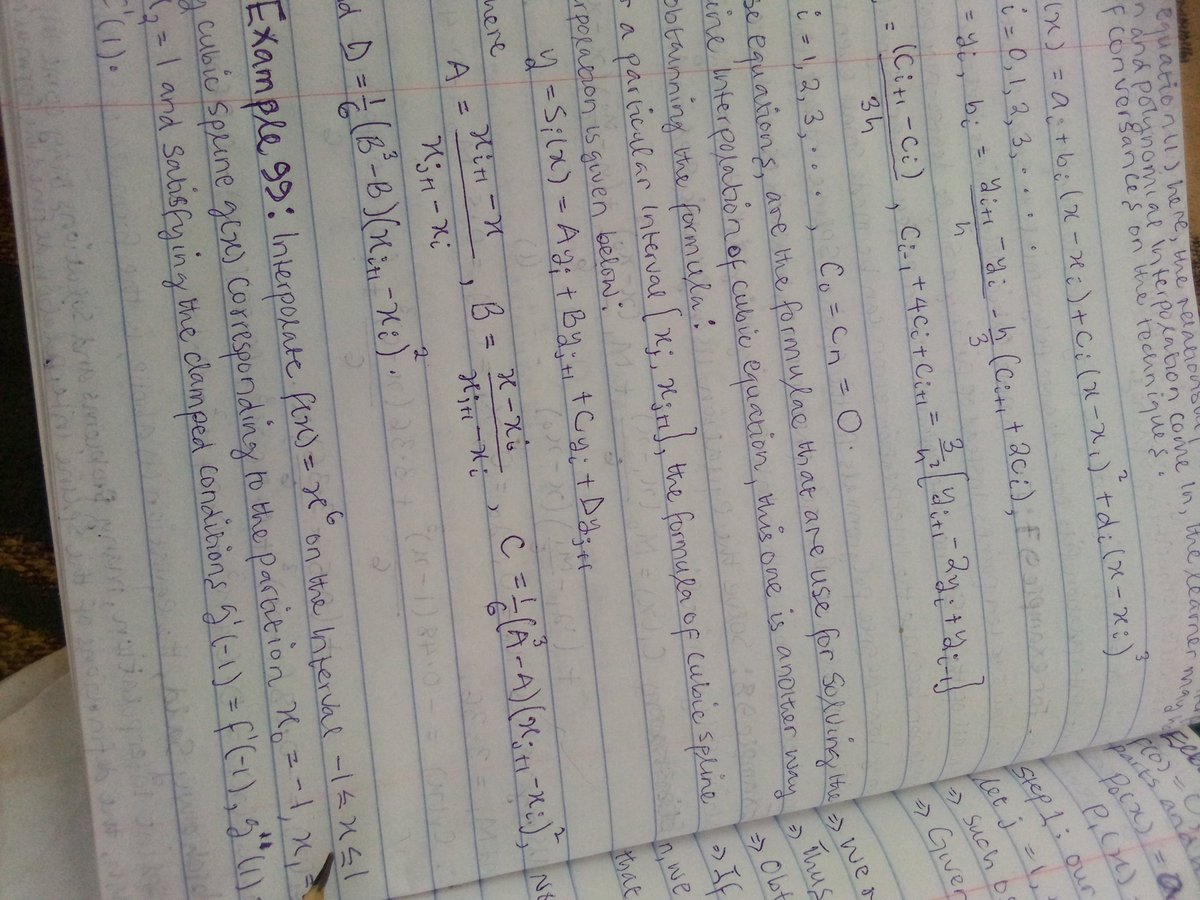 equation (1) here, the
n and polynomial interpolation come in, the learner may
f conversances on the techniques.
(x) = ai + bi(x - xi) + ci(x - xi)² + di(x - xi)³
i = 0, 1, 2, 3, . . . .
= yi, bi = (yi+1 - yi)/h - h/3 (ci+1 + 2ci),
= (ci+1 - ci)/3h, ci-1 + 4ci + ci+1 = 3/h² [yi+1 - 2yi + yi-1]
i = 1, 2, 3, . . . , c0 = cn = 0.
se equations, are the formulae that are use for solving the
ine interpolation of cubic equation, this one is another way
obtaining the formula:
r a particular interval [xj, xj+1], the formula of cubic spline
erpolation is given below:
y = Si(x) = Ayi + Byj+1 + Cyi + Dyj+1
here
A = (xj+1 - x)/(xj+1 - xi), B = (x - xi)/(xj+1 - xi), C = 1/6 (A³ - A)(xj+1 - xi)²,
d D = 1/6 (B³ - B)(xi+1 - xi)².
Example 99: Interpolate f(x) = x⁶ on the interval -1 ≤ x ≤ 1
y cubic spline g(x) corresponding to the partition x0 = -1, x1 =
x2 = 1 and satisfying the clamped conditions g'(-1) = f'(-1), g''(1)
f'(1).
P1(x)
Step 1: our
let j = 1,
⇒ such
⇒ Given
⇒ Wer
⇒ Thus
⇒ Obt
⇒ If
n, we
that